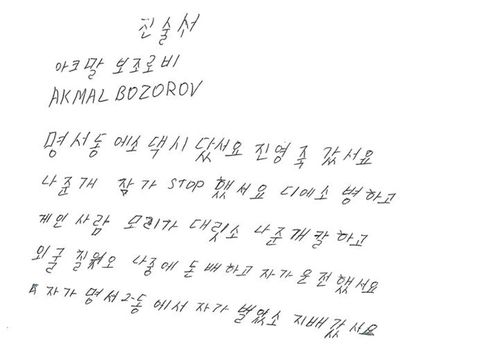 진술서
아크말 보조로비
AKMAL BOZOROV
명서동 에소 댁시 닸서요 진영 쪽 갔서요
나준개 잠가 STOP 했서요 디에소 병하고
게인 사람 모리가 대릿소 나준개 칼 하고
외굴 질 나중에 돈 배하고 자가 운전 했서요
자가 명서2동 에서 자가 벌었소 지배 갔서요